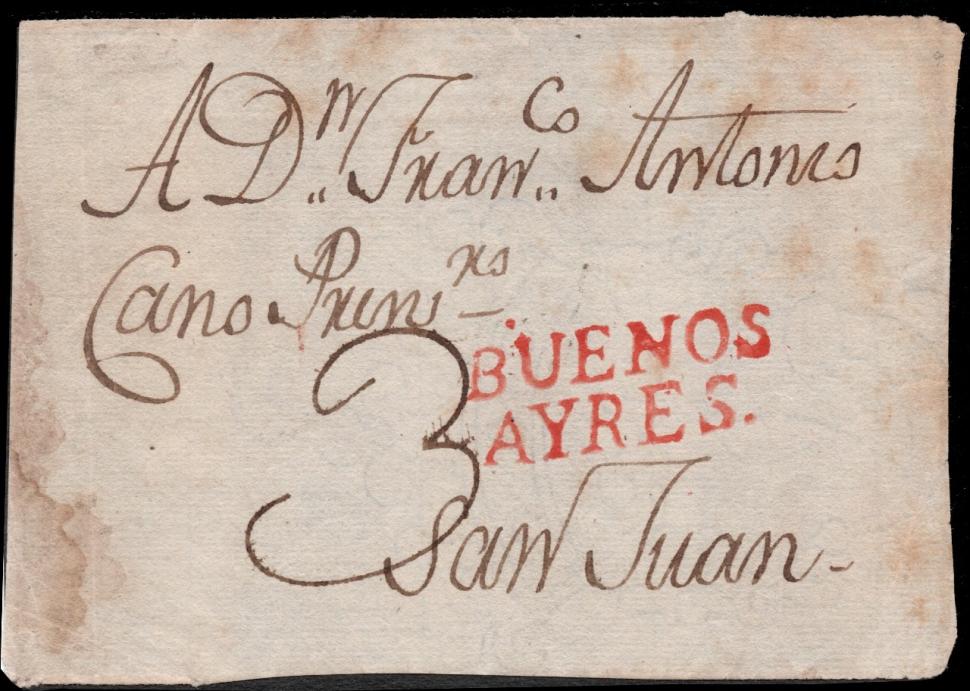 A Dn Franco Antonio
Cano
BUENOS
AYRES.
3
San Juan